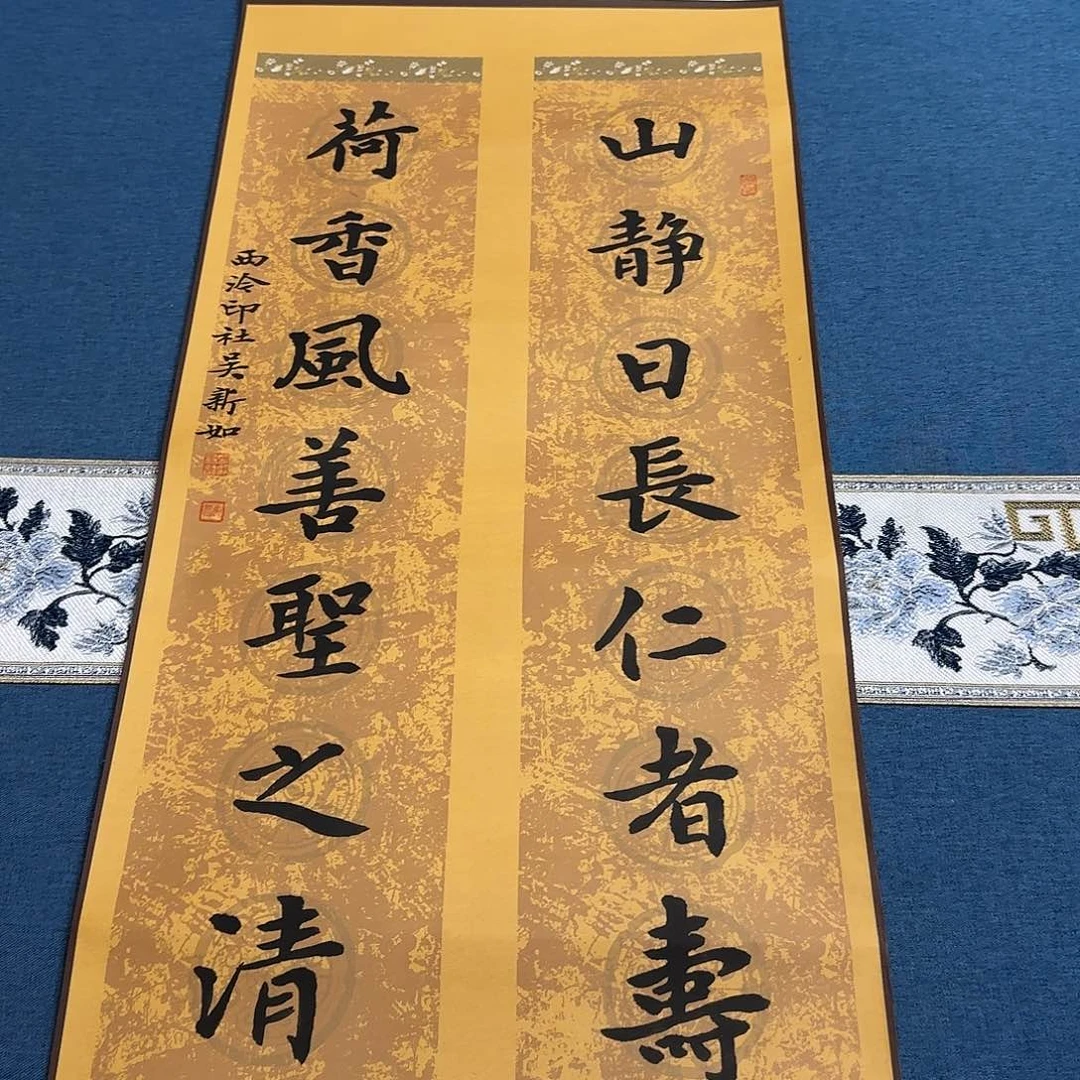 山静日長仁者壽
荷香風善聖之清
西泠印社吴新如